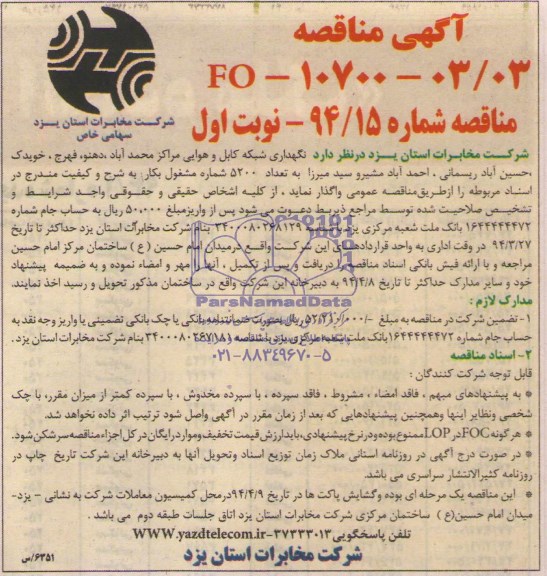 آگهی مناقصه
FO – ۱۰۷۰۰ – ۰۳/۰۳
مناقصه شماره ۹۴/۱۵ – نوبت اول
شرکت مخابرات استان یزد
سهامی خاص
شرکت مخابرات استان یزد درنظر دارد نگهداری شبکه کابل و هوایی مراکز محمد آباد ،دهنو، فهرج ، خویدک
،حسین آباد ریسمانی ، احمد آباد مشیرو سید میرزا به تعداد ۵۲۰۰ شماره مشغول بکار به شرح و کیفیت مندرج در
اسناد مربوطه را ازطریق مناقصه عمومی واگذار نماید ، از کلیه اشخاص حقیقی و حقوقی واجد شرایط و
تشخیص صلاحیت شده توسط مراجع ذیربط دعوت می شود پس از واریز مبلغ ۵۰۰،۰۰۰ ریال به حساب جام شماره
۱۶۴۴۴۴۴۴۷۲ بانک ملت شعبه مرکزی یزد بنام شرکت مخابرات استان یزد حداکثر تا تاریخ
۹۴/۳/۲۷ در وقت اداری به واحد قراردادهای این شرکت واقع در میدان امام حسین ( ع ) ساختمان مرکز امام حسین
مراجعه و با ارائه فیش بانکی اسناد مناقصه را دریافت و پس از تکمیل ، آنها را مهر و امضاء نموده و به ضمیمه پیشنهاد
خود و سایر مدارک حداکثر تا تاریخ ۹۴/۴/۸ به دبیرخانه این شرکت واقع در ساختمان مذکور تحویل و رسید اخذ نمایند.
مدارک لازم :
۱- تضمین شرکت در مناقصه به مبلغ ریال بصورت ضمانتنامه بانکی یا چک بانکی تضمینی یا واریز وجه نقد به
حساب جام شماره ۱۶۴۴۴۴۴۴۷۲ بانک ملت شعبه مرکزی یزد با شناسه بنام شرکت مخابرات استان یزد.
۲- اسناد مناقصه
قابل توجه شرکت کنندگان :
* به پیشنهادهای مبهم ، فاقد امضاء ، مشروط ، فاقد سپرده ، با سپرده مخدوش ، با سپرده کمتر از میزان مقرر، با چک
شخصی ونظایر اینها وهمچنین پیشنهادهایی که بعد از زمان مقرر در آگهی واصل شود ترتیب اثر داده نخواهد شد.
* هر گونه FOC در LOP ممنوع بوده و در نرخ پیشنهادی، باید ارزش قیمت تخفیف و موارد رایگان در کل اجزاء مناقصه سرشکن شود.
* در صورت درج آگهی در روزنامه استانی ملاک زمان توزیع اسناد وتحویل آنها به دبیرخانه این شرکت تاریخ چاپ در
روزنامه کثیرالانتشار سراسری می باشد.
* این مناقصه یک مرحله ای بوده وگشایش پاکت ها در تاریخ ۹۴/۴/۹ درمحل کمیسیون معاملات شرکت به نشانی – یزد-
میدان امام حسین(ع ) ساختمان مرکزی شرکت مخابرات استان یزد اتاق جلسات طبقه دوم می باشد .
تلفن پاسخگویی WWW.yazdtelecom.ir-۳۷۳۳۳۰۱۳
شرکت مخابرات استان یزد
۶۳۵۱/س
ParsNamadData
۰۲۱-۸۸۳۴۹۶۷۰-۵